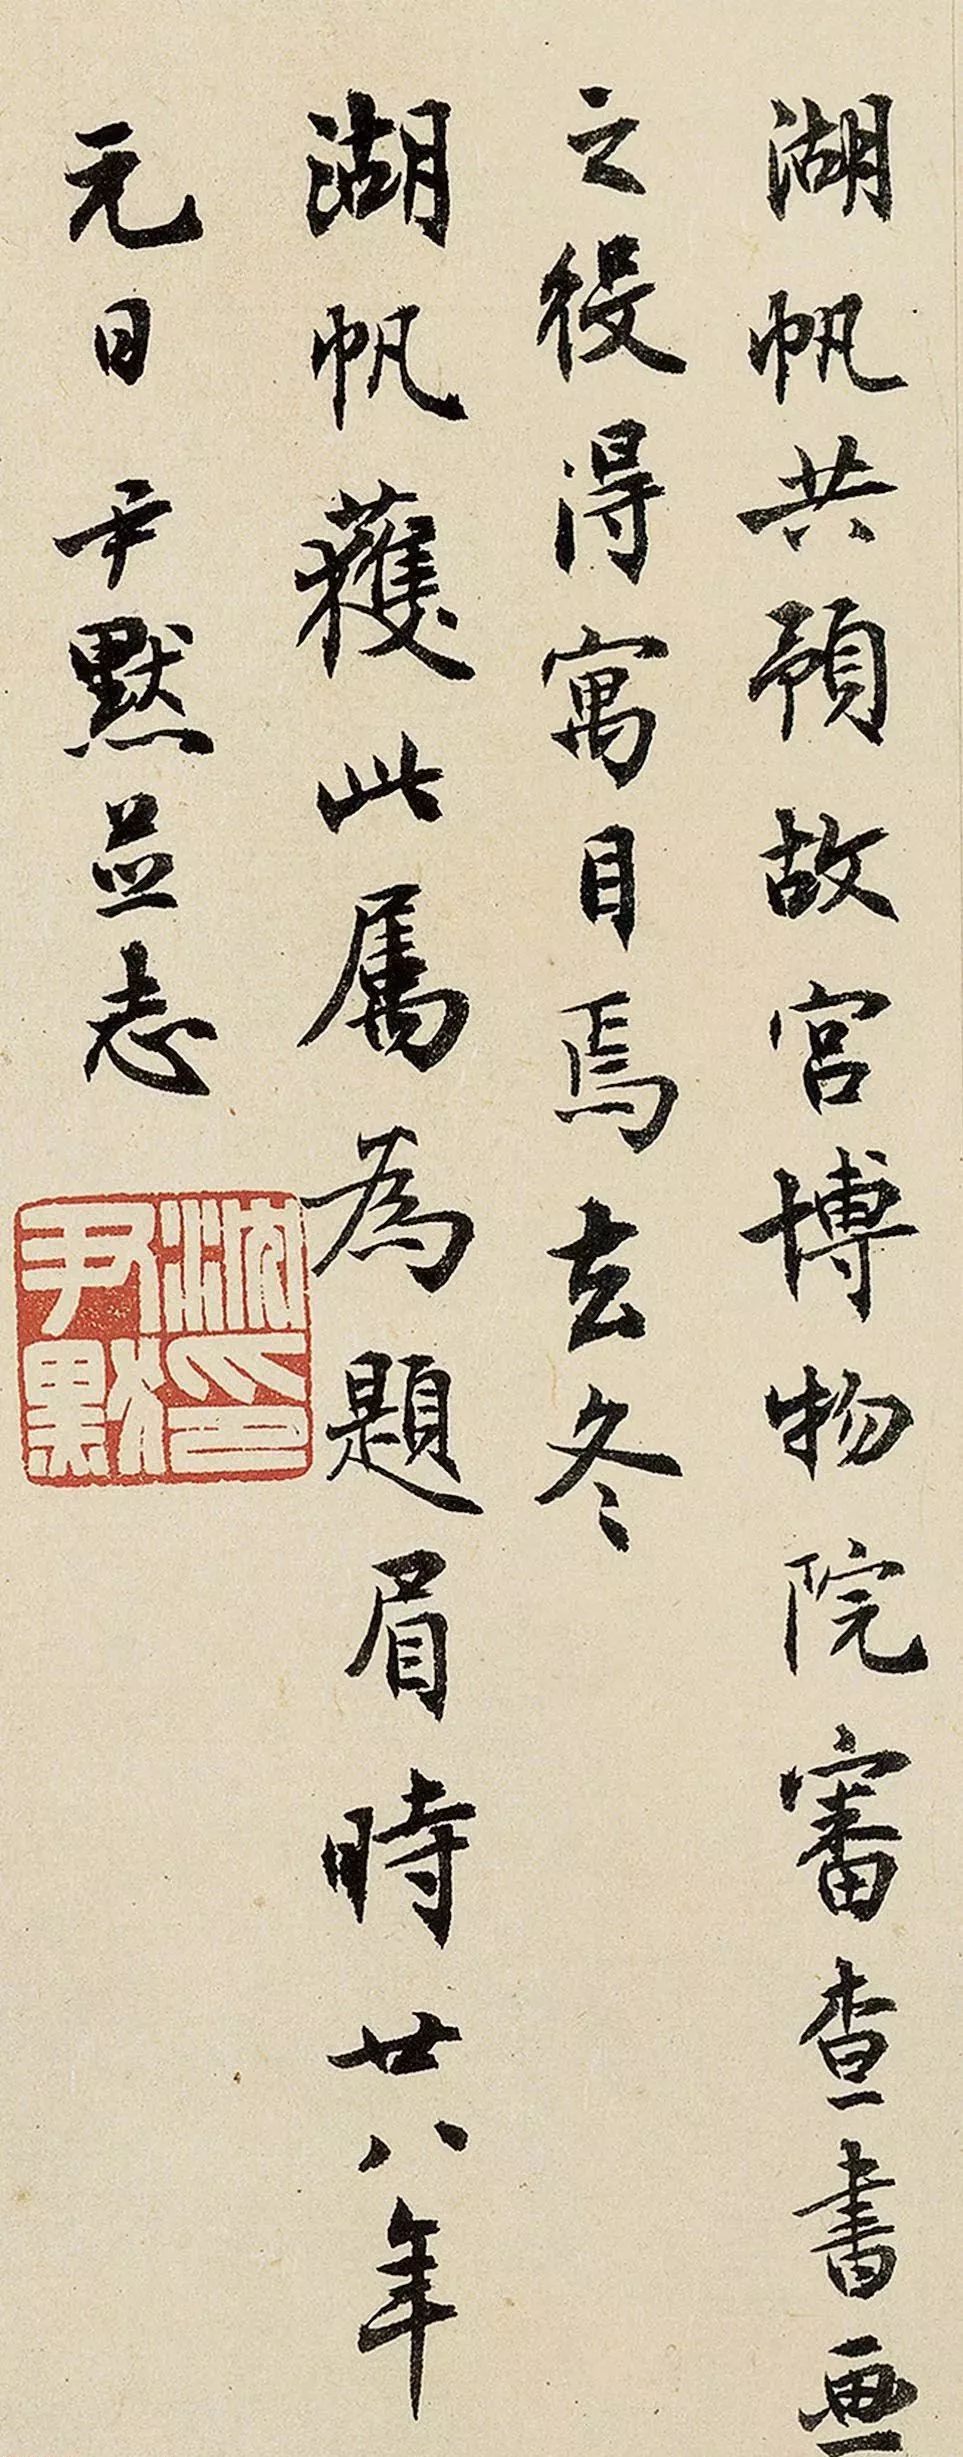 湖帆共預故宮博物院審查書画
之役得寓目焉去冬
湖帆獲此屬為題眉時廿八年
元日尹默並志
沈尹默印